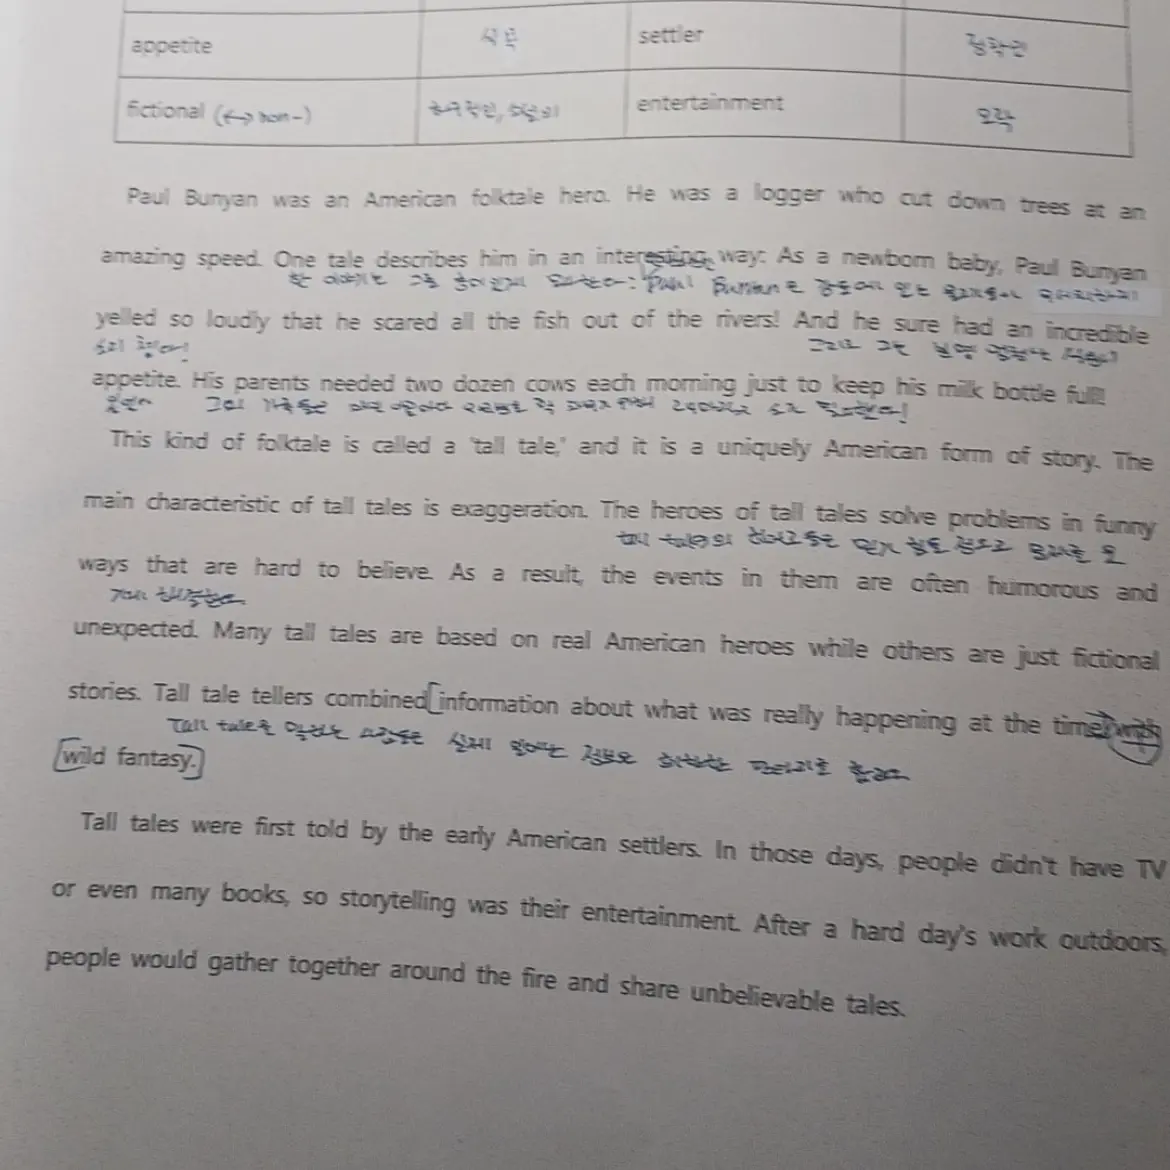 appetite 식욕 settler 정착민
fictional (↔ non-) 허구적인, entertainment 오락
Paul Bunyan was an American folktale hero. He was a logger who cut down trees at an
amazing speed. One tale describes him in an interesting way: As a newborn baby, Paul Bunyan
한 이야기는 그를 흥미롭게 묘사한다: Paul Bunyan은 강물에 있는 물고기들이
yelled so loudly that he scared all the fish out of the rivers! And he sure had an incredible
소리 쳤다! 그리고 그는 분명 엄청난 식욕이
appetite. His parents needed two dozen cows each morning just to keep his milk bottle full!
있었다 그의 매일 아침마다 우유병을 꽉 채우기 위해 24마리의 소가 필요했다!
This kind of folktale is called a 'tall tale,' and it is a uniquely American form of story. The
main characteristic of tall tales is exaggeration. The heroes of tall tales solve problems in funny
tall tale의 히어로들은 믿기 힘들 정도로 문제를 웃
ways that are hard to believe. As a result, the events in them are often humorous and
기게 해결한다
unexpected. Many tall tales are based on real American heroes while others are just fictional
stories. Tall tale tellers combined [information about what was really happening at the time] with
Tall tale을 말하는 사람들은 실제 일어나는 정보와 판타지를
[wild fantasy.]
Tall tales were first told by the early American settlers. In those days, people didn't have TV
or even many books, so storytelling was their entertainment. After a hard day's work outdoors,
people would gather together around the fire and share unbelievable tales.